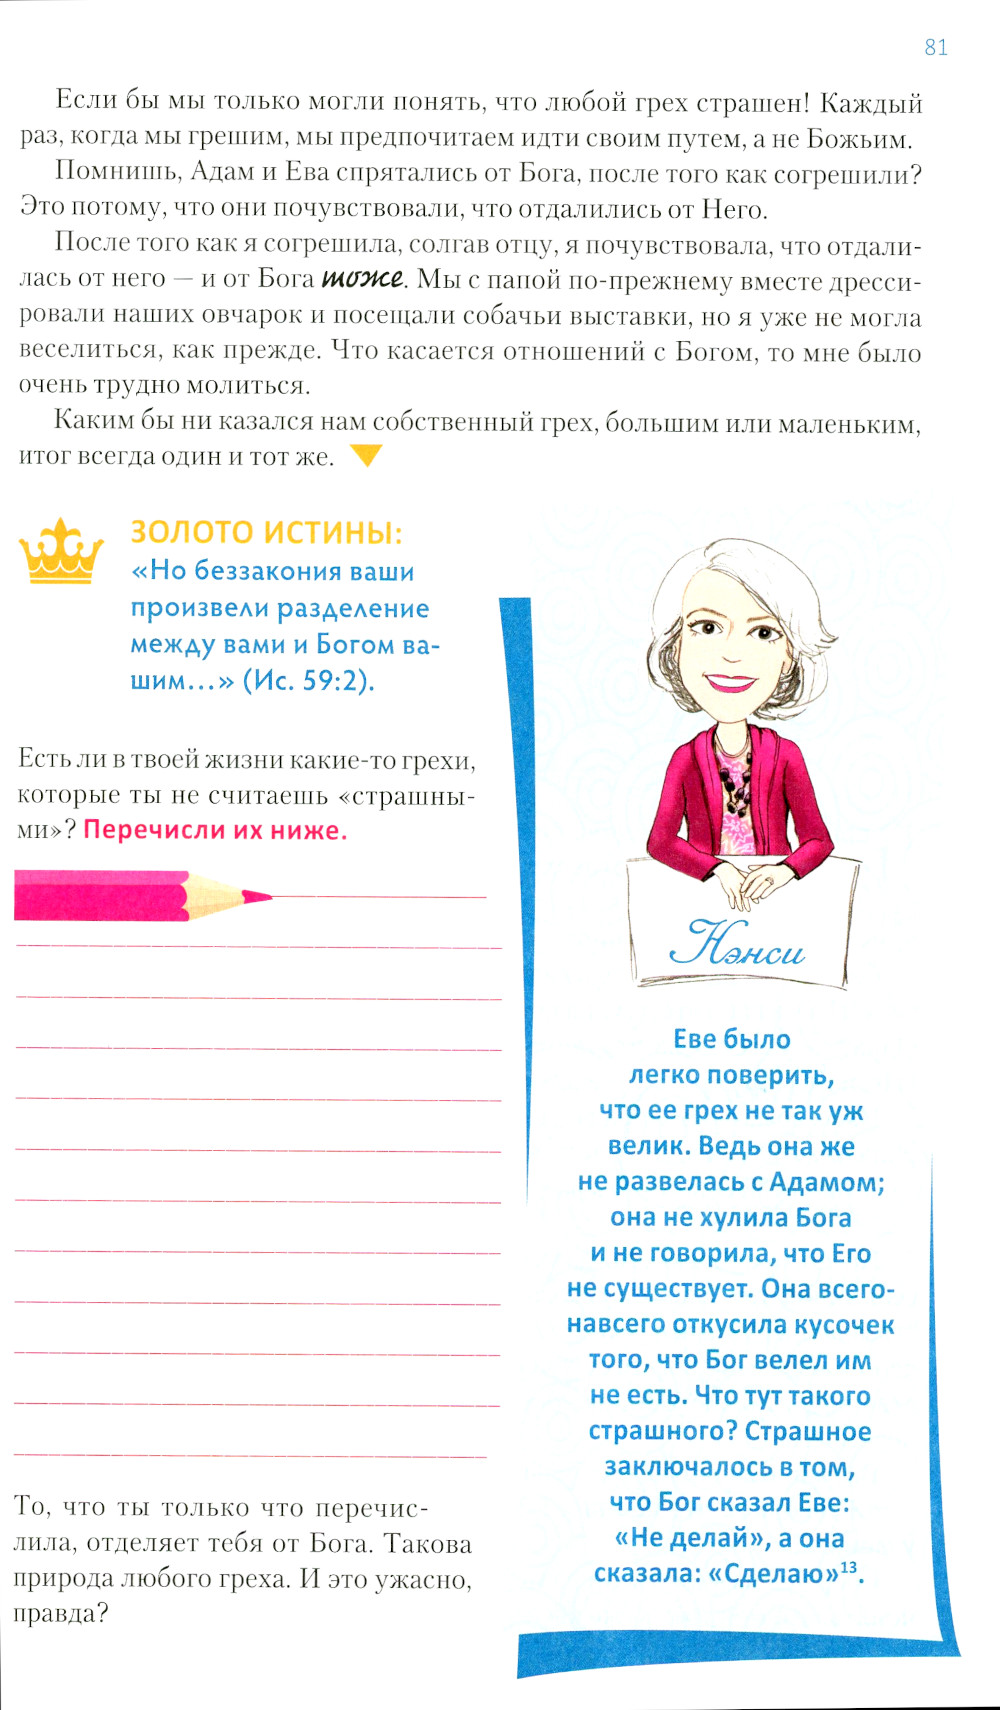 81
Если бы мы только могли понять, что любой грех страшен! Каждый
раз, когда мы грешим, мы предпочитаем идти своим путем, а не Божьим.
Помнишь, Адам и Ева спрятались от Бога, после того как согрешили?
Это потому, что они почувствовали, что отдалились от Него.
После того как я согрешила, солгав отцу, я почувствовала, что отдали-
лась от него — и от Бога тоже. Мы с папой по-прежнему вместе дресси-
ровали наших овчарок и посещали собачьи выставки, но я уже не могла
веселиться, как прежде. Что касается отношений с Богом, то мне было
очень трудно молиться.
Каким бы ни казался нам собственный грех, большим или маленьким,
итог всегда один и тот же.
ЗОЛОТО ИСТИНЫ:
«Но беззакония ваши
произвели разделение
между вами и Богом ва-
шим...» (Ис. 59:2).
Есть ли в твоей жизни какие-то грехи,
которые ты не считаешь «страшны-
ми»? Перечисли их ниже.
То, что ты только что перечис-
лила, отделяет тебя от Бога. Такова
природа любого греха. И это ужасно,
правда?
Нэнси
Еве было
легко поверить,
что ее грех не так уж
велик. Ведь она же
не развелась с Адамом;
она не хулила Бога
и не говорила, что Его
не существует. Она всего-
навсего откусила кусочек
того, что Бог велел им
не есть. Что тут такого
страшного? Страшное
заключалось в том,
что Бог сказал Еве:
«Не делай», а она
сказала: «Сделаю»¹³.